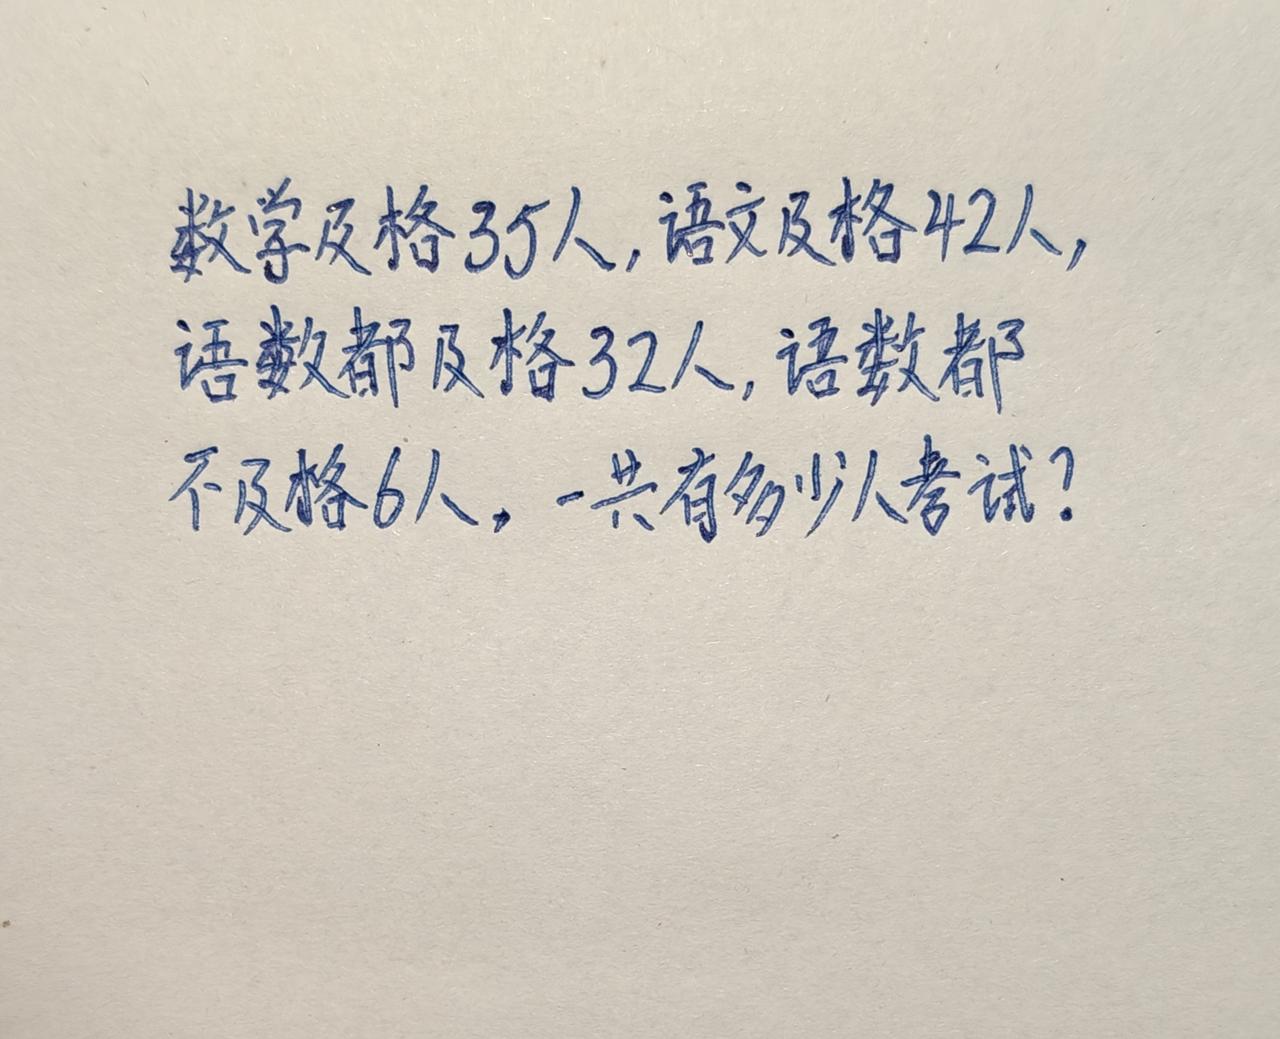 数学及格35人,语文及格42人,
语数都及格32人,语数都
不及格6人,一共有多少人考试?